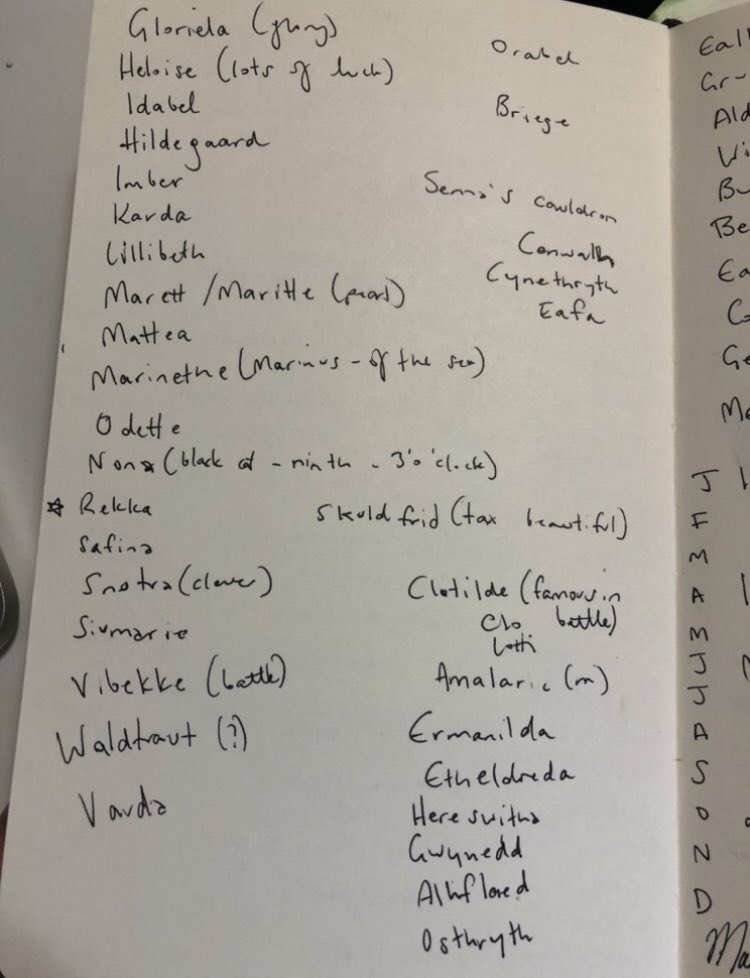 Gloriela (glory)
Heloise (lots of luck)
Idabel
Hildegaard
Imber
Karda
Lillibeth
Marett / Maritte (pearl)
Mattea
Marinethe (Marinus - of the sea)
Odette
Nona (black at - ninth - 3'o'clock)
☆ Rekka
Safina
Snotra (clever)
Sivmarie
Vibekke (battle)
Waldtraut (?)
Varda
Orabel
Briege
Senna's cauldron
Cenwalh
Cynethryth
Eafa
Skuldfrid (tax beautiful)
Clotilde (famous in
battle)
Clo
Lotti
Amalaric (m)
Ermanilda
Etheldreda
Hereswitha
Gwynedd
Alhflaed
Osthryth
J
F
M
A
M
J
J
A
S
O
N
D